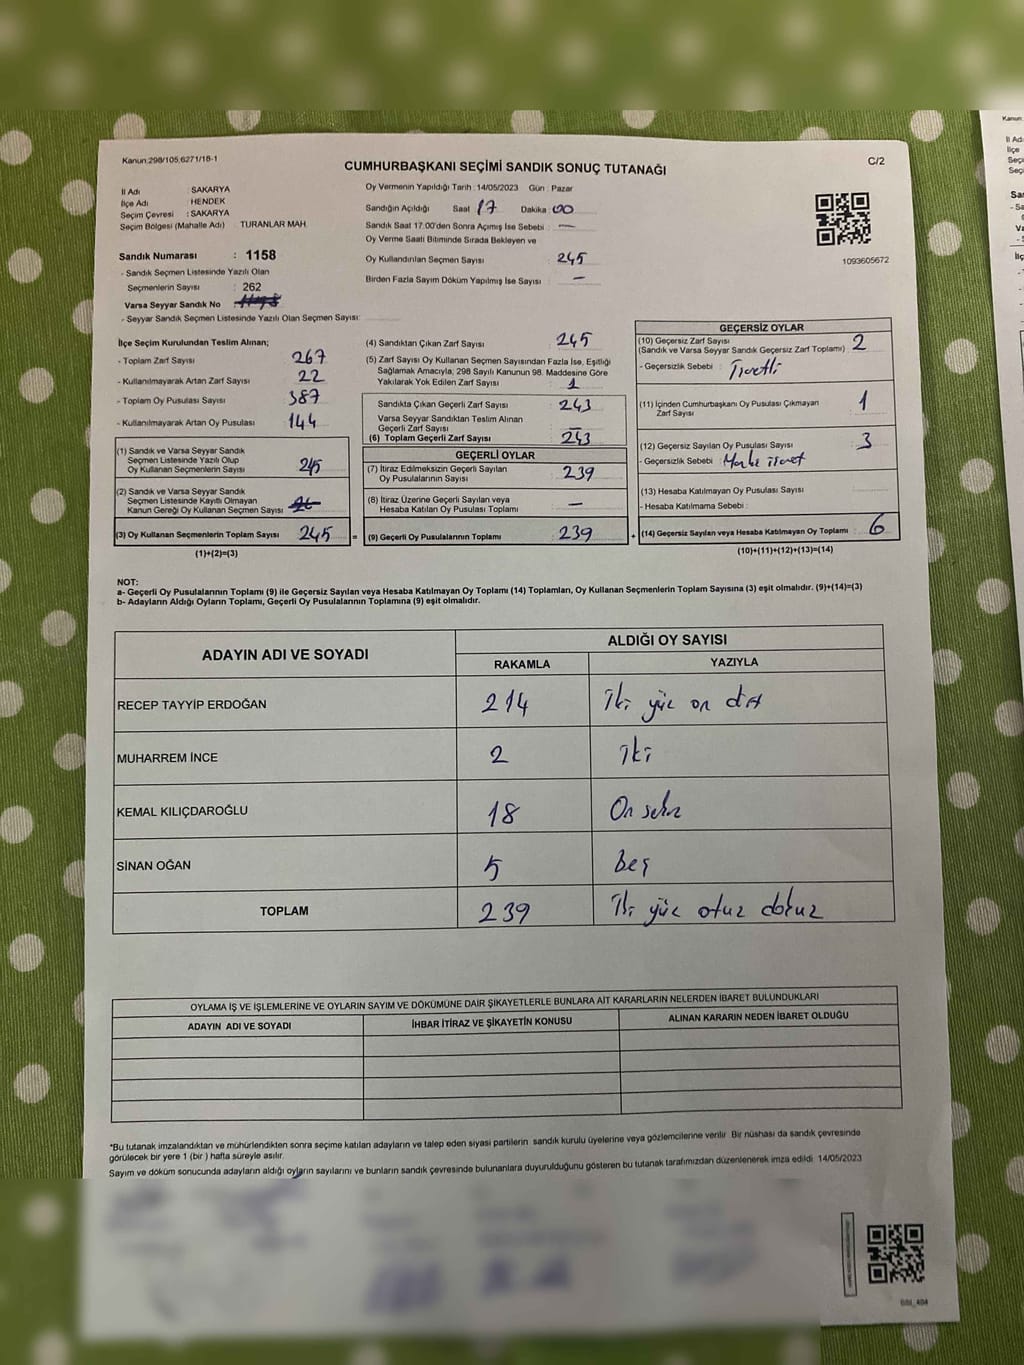 Kanun:298/105,6271/18-1
CUMHURBAŞKANI SEÇİMİ SANDIK SONUÇ TUTANAĞI
C/2
İl Adı : SAKARYA
İlçe Adı : HENDEK
Seçim Çevresi : SAKARYA
Seçim Bölgesi (Mahalle Adı) TURANLAR MAH.
Sandık Numarası : 1158
- Sandık Seçmen Listesinde Yazılı Olan
Seçmenlerin Sayısı : 262
Varsa Seyyar Sandık No :
- Seyyar Sandık Seçmen Listesinde Yazılı Olan Seçmen Sayısı:
Oy Vermenin Yapıldığı Tarih : 14/05/2023 Gün : Pazar
Sandığın Açıldığı Saat 17 Dakika 00
Sandık Saat 17.00'den Sonra Açımış İse Sebebi : —
Oy Verme Saati Bitiminde Sırada Bekleyen ve
Oy Kullandırılan Seçmen Sayısı : 245
Birden Fazla Sayım Döküm Yapılmış İse Sayısı : —
1093605672
İlçe Seçim Kurulundan Teslim Alınan;
- Toplam Zarf Sayısı : 267
- Kullanılmayarak Artan Zarf Sayısı : 22
- Toplam Oy Pusulası Sayısı : 387
- Kullanılmayarak Artan Oy Pusulası : 144
(1) Sandık ve Varsa Seyyar Sandık
Seçmen Listesinde Yazılı Olup
Oy Kullanan Seçmenlerin Sayısı : 245
(2) Sandık ve Varsa Seyyar Sandık
Seçmen Listesinde Kayıtlı Olmayan
Kanun Gereği Oy Kullanan Seçmen Sayısı :
(3) Oy Kullanan Seçmenlerin Toplam Sayısı : 245 =
(1)+(2)=(3)
(4) Sandıktan Çıkan Zarf Sayısı : 245
(5) Zarf Sayısı Oy Kullanan Seçmen Sayısından Fazla İse, Eşitliği
Sağlamak Amacıyla, 298 Sayılı Kanunun 98. Maddesine Göre
Yakılarak Yok Edilen Zarf Sayısı : 1
Sandıkta Çıkan Geçerli Zarf Sayısı : 243
Varsa Seyyar Sandıktan Teslim Alınan
Geçerli Zarf Sayısı : —
(6) Toplam Geçerli Zarf Sayısı : 243
GEÇERLİ OYLAR
(7) İtiraz Edilmeksizin Geçerli Sayılan
Oy Pusulası Sayısı : 239
(8) İtiraz Üzerine Geçerli Sayılan veya
Hesaba Katılan Oy Pusulası Toplamı : —
(9) Geçerli Oy Pusulalarının Toplamı : 239 +
GEÇERSİZ OYLAR
(10) Geçersiz Zarf Sayısı
(Sandık ve Varsa Seyyar Sandık Geçersiz Zarf Toplamı) : 2
- Geçersizlik Sebebi :
(11) İçinden Cumhurbaşkanı Oy Pusulası Çıkmayan
Zarf Sayısı : 1
(12) Geçersiz Sayılan Oy Pusulası Sayısı : 3
- Geçersizlik Sebebi :
(13) Hesaba Katılmayan Oy Pusulası Sayısı :
- Hesaba Katılmama Sebebi :
(14) Geçersiz Sayılan veya Hesaba Katılmayan Oy Toplamı : 6
(10)+(11)+(12)+(13)=(14)
NOT:
a- Geçerli Oy Pusulalarının Toplamı (9) ile Geçersiz Sayılan veya Hesaba Katılmayan Oy Toplamı (14) Toplamları, Oy Kullanan Seçmenlerin Toplam Sayısına (3) eşit olmalıdır. (9)+(14)=(3)
b- Adayların Aldığı Oyların Toplamı, Geçerli Oy Pusulalarının Toplamına (9) eşit olmalıdır.
ADAYIN ADI VE SOYADI ALDIĞI OY SAYISI
RAKAMLA YAZIYLA
RECEP TAYYİP ERDOĞAN 214 İki yüz on dört
MUHARREM İNCE 2 iki
KEMAL KILIÇDAROĞLU 18 On sekiz
SİNAN OĞAN 5 beş
TOPLAM 239 İki yüz otuz dokuz
OYLAMA İŞ VE İŞLEMLERİNE VE OYLARIN SAYIM VE DÖKÜMÜNE DAİR ŞİKAYETLERLE BUNLARA AİT KARARLARIN NELERDEN İBARET BULUNDUKLARI
ADAYIN ADI VE SOYADI İHBAR İTİRAZ VE ŞİKAYETİN KONUSU ALINAN KARARIN NEDEN İBARET OLDUĞU
*Bu tutanak imzalandıktan ve mühürlendikten sonra seçime katılan adayların ve talep eden siyasi partilerin sandık kurulu üyelerine veya gözlemcilerine verilir. Bir nüshası da sandık çevresinde
görülecek bir yere 1 (bir ) hafta süreyle asılır.
Sayım ve döküm sonucunda adayların aldığı oyların sayılarını ve bunların sandık çevresinde bulunanlara duyurulduğunu gösteren bu tutanak tarafımızdan düzenlenerek imza edildi. 14/05/2023